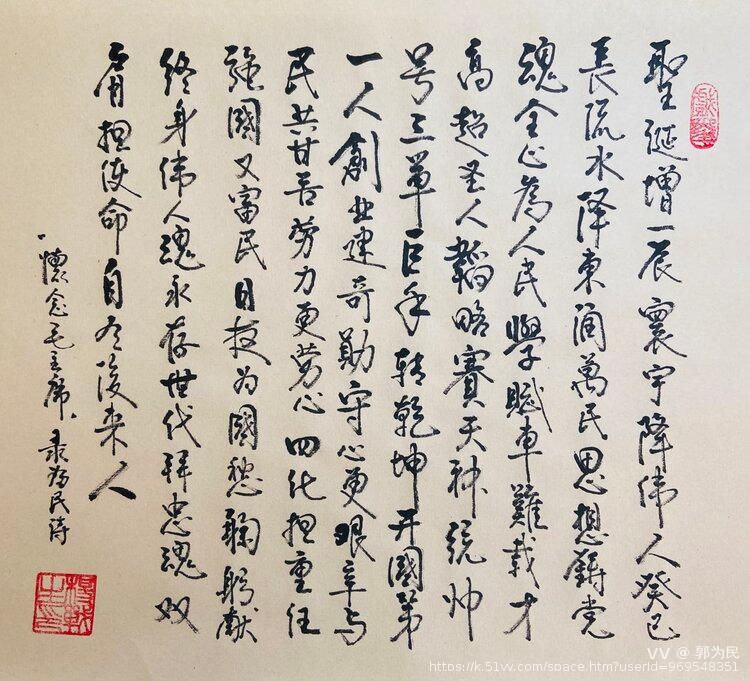 聖诞增一辰寰宇降伟人癸巳
長流水降東涌萬民思想鑄党
魂全心為人民學賦車難载才
高超圣人韜略賽天神统帅
号三軍巨手转乾坤开國第
一人創业建奇勋守心更艰辛与
民共甘苦劳力更劳心四化担重任
強國又富民日夜为國愁鞠躬献
终身伟人魂永存世代拜忠魂双
肩担使命自有後来人
懷念毛主席录为民诗
VV @ 郭为民
https://k.51vv.com/space.htm?userId=969548351